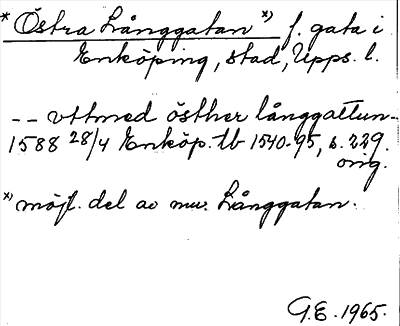 * Östra Långgatan *) f. gata i
Enköping, stad, Upps. l.
-- vttmed östher långgattun-
1588 28/4 Enköp. tb 1540-95, s. 229.
orig.
*) möjl. del av nuv. Långgatan.
G.E. 1965.